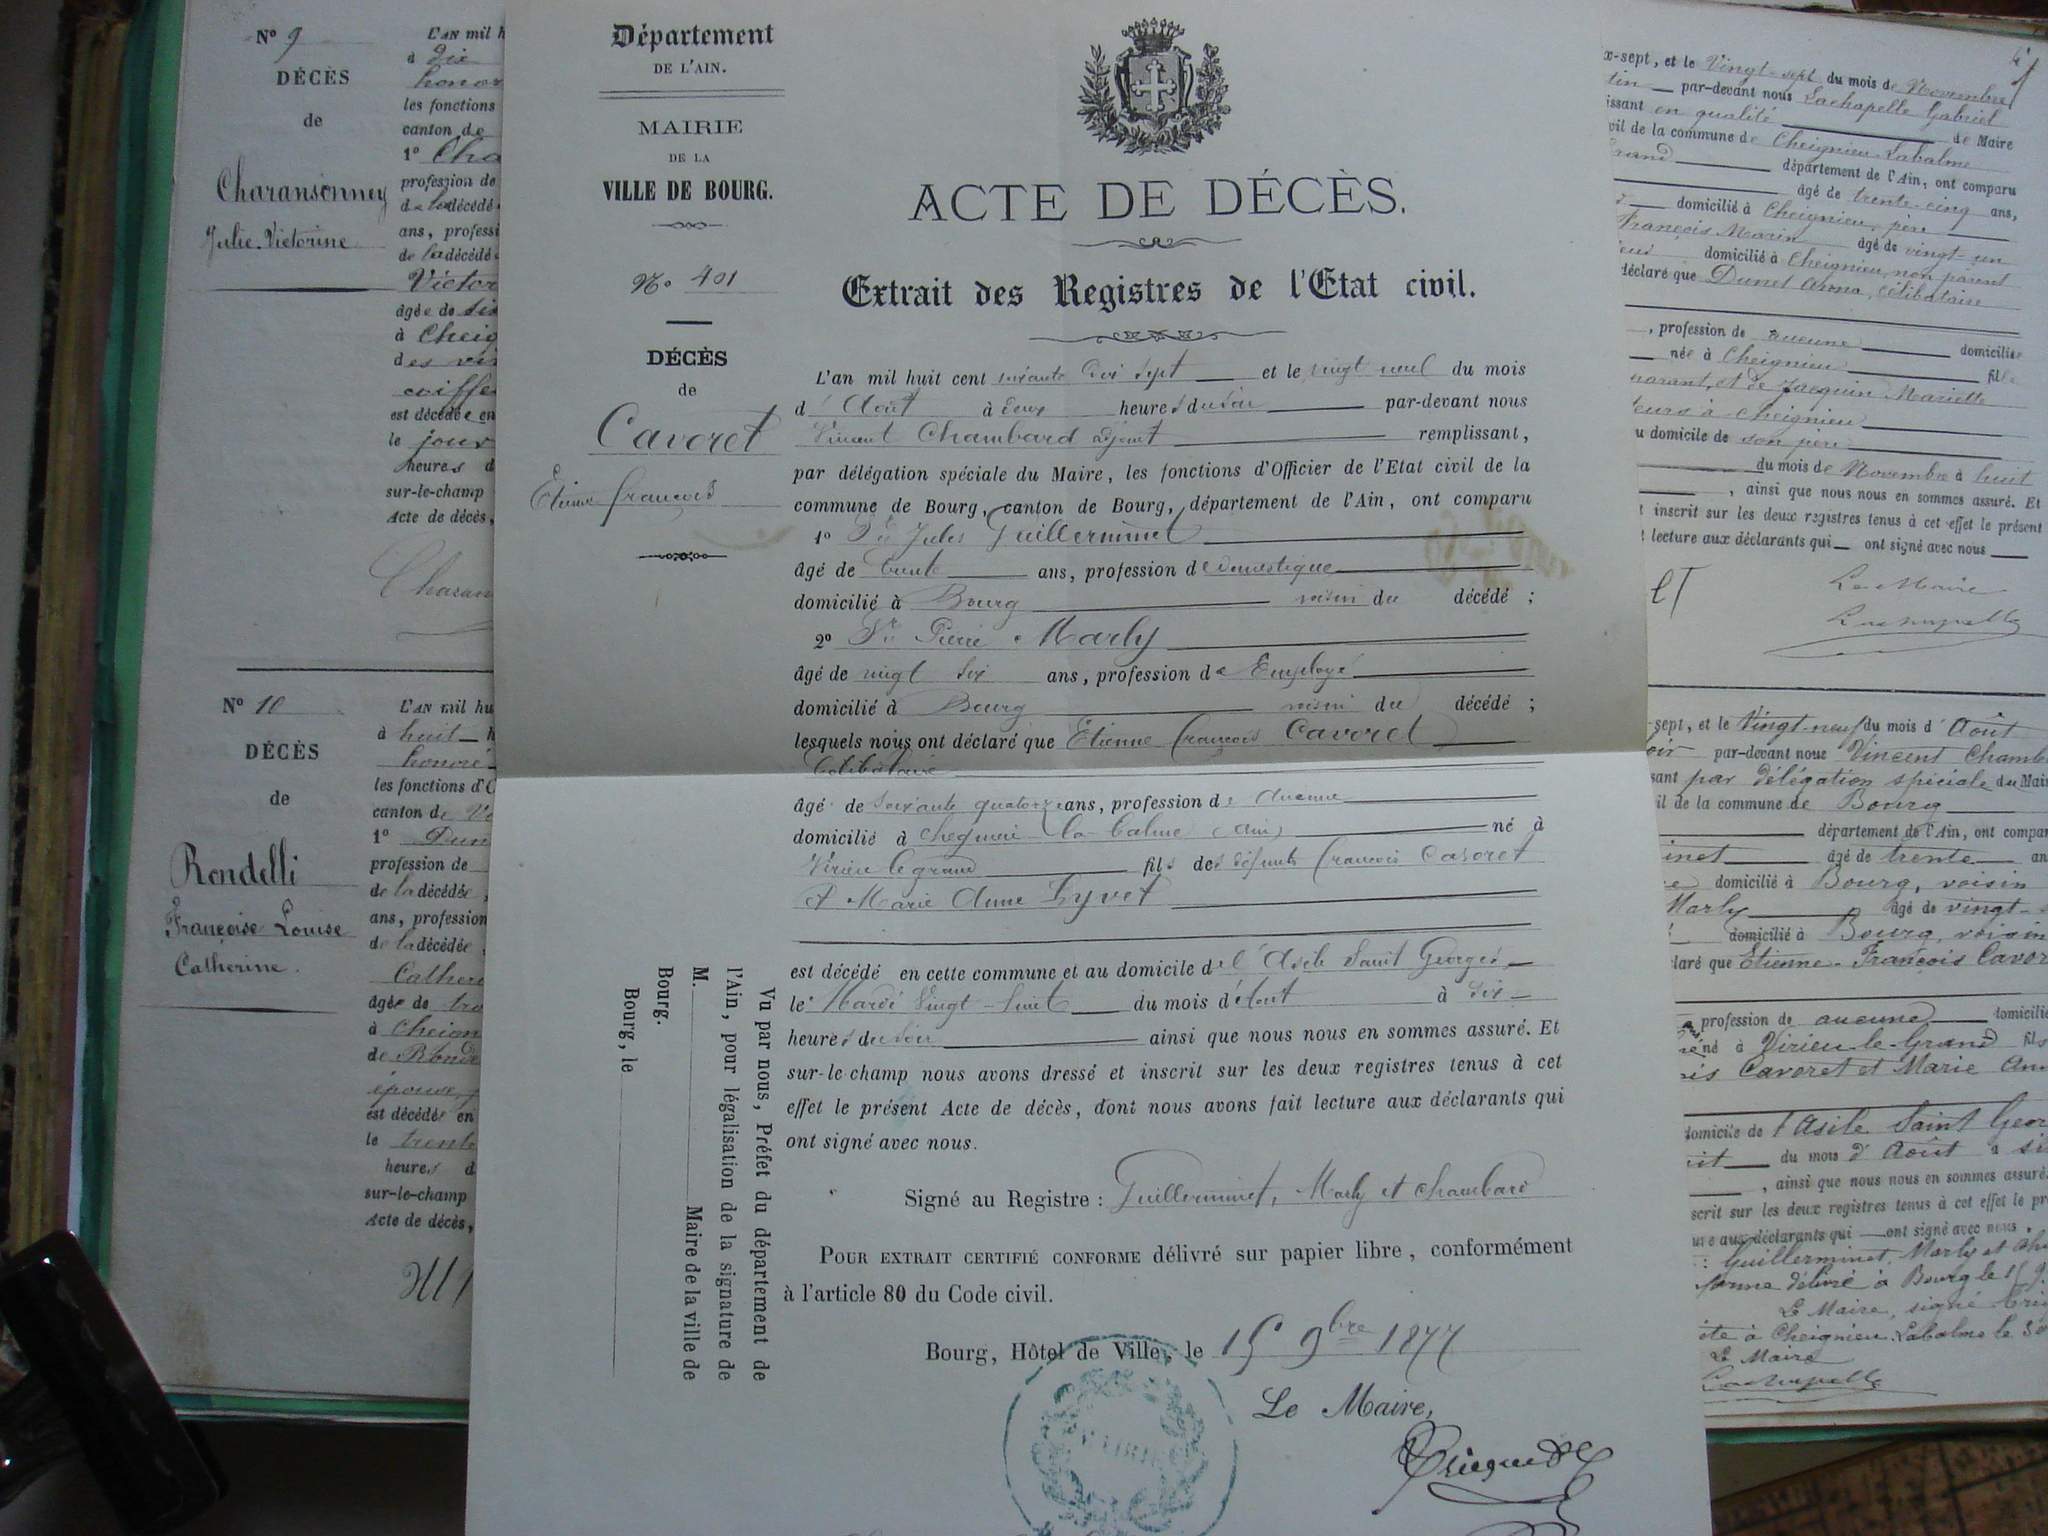 N° 9
DÉCÈS
de
Charansonney
Julie Victorine
L'AN mil h
à dix
honor
les fonctions
canton de
1° Cha
profession de
de la décédé
ans, profess
de la décédé
Victor
âgée de six
à Cheig
des
coiffe
est décédée en
le jour
heures d
sur-le-champ
Acte de décès,
Charan
N° 10
DÉCÈS
de
Rondelli
Françoise Louise
Catherine.
L'AN mil hu
à huit
honoré
les fonctions d'O
canton de
1° Dun
profession de
de la décédée,
ans, profession
de la décédée,
Cathe
âgée de
à Cheign
de Ronde
épouse
est décédée en
le trente
heures d
sur-le-champ
Acte de décès,
Département
DE L'AIN.
MAIRIE
DE LA
VILLE DE BOURG.
N° 401
DÉCÈS
de
Cavoret
Etienne françois
ACTE DE DÉCÈS.
Extrait des Registres de l'Etat civil.
L'an mil huit cent soixante dix sept et le vingt neuf du mois
d'Août à deux heures du soir par-devant nous
Vincent Chambard adjoint remplissant,
par délégation spéciale du Maire, les fonctions d'Officier de l'Etat civil de la
commune de Bourg, canton de Bourg, département de l'Ain, ont comparu
1° Sr Jules Guillerminet
âgé de trente ans, profession de domestique
domicilié à Bourg voisin du décédé ;
2° Sr Pierre Marly
âgé de vingt six ans, profession de Employé
domicilié à Bourg voisin du décédé ;
lesquels nous ont déclaré que Etienne françois Cavoret
Célibataire
âgé de soixante quatorze ans, profession de Aucune
domicilié à Chegnieu la balme (Ain) né à
Virieu le grand fils des défunts françois Cavoret
et Marie Anne Lyvet
est décédé en cette commune et au domicile de l'Asile Saint Georges
le Mardi Vingt-huit du mois d'Aout à six
heures du soir ainsi que nous nous en sommes assuré. Et
sur-le-champ nous avons dressé et inscrit sur les deux registres tenus à cet
effet le présent Acte de décès, dont nous avons fait lecture aux déclarants qui
ont signé avec nous.
Signé au Registre : Guillerminet, Marly et Chambard
POUR EXTRAIT CERTIFIÉ CONFORME délivré sur papier libre, conformément
à l'article 80 du Code civil.
Bourg, Hôtel de Ville, le 15 9bre 1877
Le Maire,
Vu par nous, Préfet du département de
l'Ain, pour légalisation de la signature de
M. Maire de la ville de
Bourg.
Bourg, le
x-sept, et le Vingt-sept du mois de Novembre
tin par-devant nous Lachapelle Gabriel
issant en qualité de Maire
vil de la commune de Cheignieu-Labalme
rand département de l'Ain, ont comparu
âgé de trente-cinq ans,
domicilié à Cheignieu, père
François Marin âgé de vingt-un
domicilié à Cheignieu, non parent
déclaré que Dunet Anna, célibataire
, profession de aucune domicilié
née à Cheignieu fille
et de Jacquin Mariette
teurs à Cheignieu
u domicile de son père
du mois de Novembre à huit
, ainsi que nous nous en sommes assuré. Et
inscrit sur les deux registres tenus à cet effet le présent
lecture aux déclarants qui ont signé avec nous
Le Maire
Lachapelle
-sept, et le Vingt-neuf du mois d'Août
oir par-devant nous Vincent Chamb
sant par délégation spéciale du Mai
il de la commune de Bourg
département de l'Ain, ont compar
inet âgé de trente an
domicilié à Bourg, voisin
Marly âgé de vingt-s
domicilié à Bourg, voisin
laré que Etienne-François Cavor
profession de aucune domicilié
né à Virieu-le-Grand fils
is Cavoret et Marie Ann
domicile de l'Asile Saint Geor
it du mois d'Août à si
, ainsi que nous nous en sommes assuré.
scrit sur les deux registres tenus à cet effet le pr
ure aux déclarants qui ont signé avec nous.
: Guillerminet, Marly et Cha
forme délivré à Bourg le 15 9
Le Maire, signé
à Cheignieu-Labalme le
Le Maire
Lachapelle